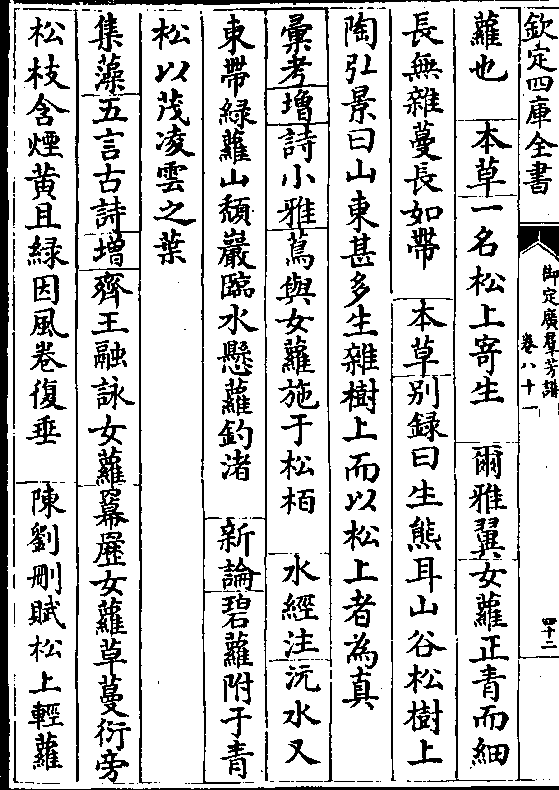 欽定四庫全書
御定廣羣芳譜
卷八十一
四十二
蘿也　本草一名松上寄生　爾雅翼女蘿正青而細
長無雜蔓長如帶　本草别録曰生熊耳山谷松樹上
陶弘景曰山東甚多生雜樹上而以松上者為真
彚考增詩小雅蔦與女蘿施于松栢　水經注沅水又
東帶緑蘿山頽巖臨水懸蘿釣渚　新論碧蘿附于青
松以茂凌雲之葉
集藻五言古詩增齊王融詠女蘿冪歷女蘿草蔓衍旁
松枝含煙黄且緑因風卷復垂　陳劉刪賦松上輕蘿